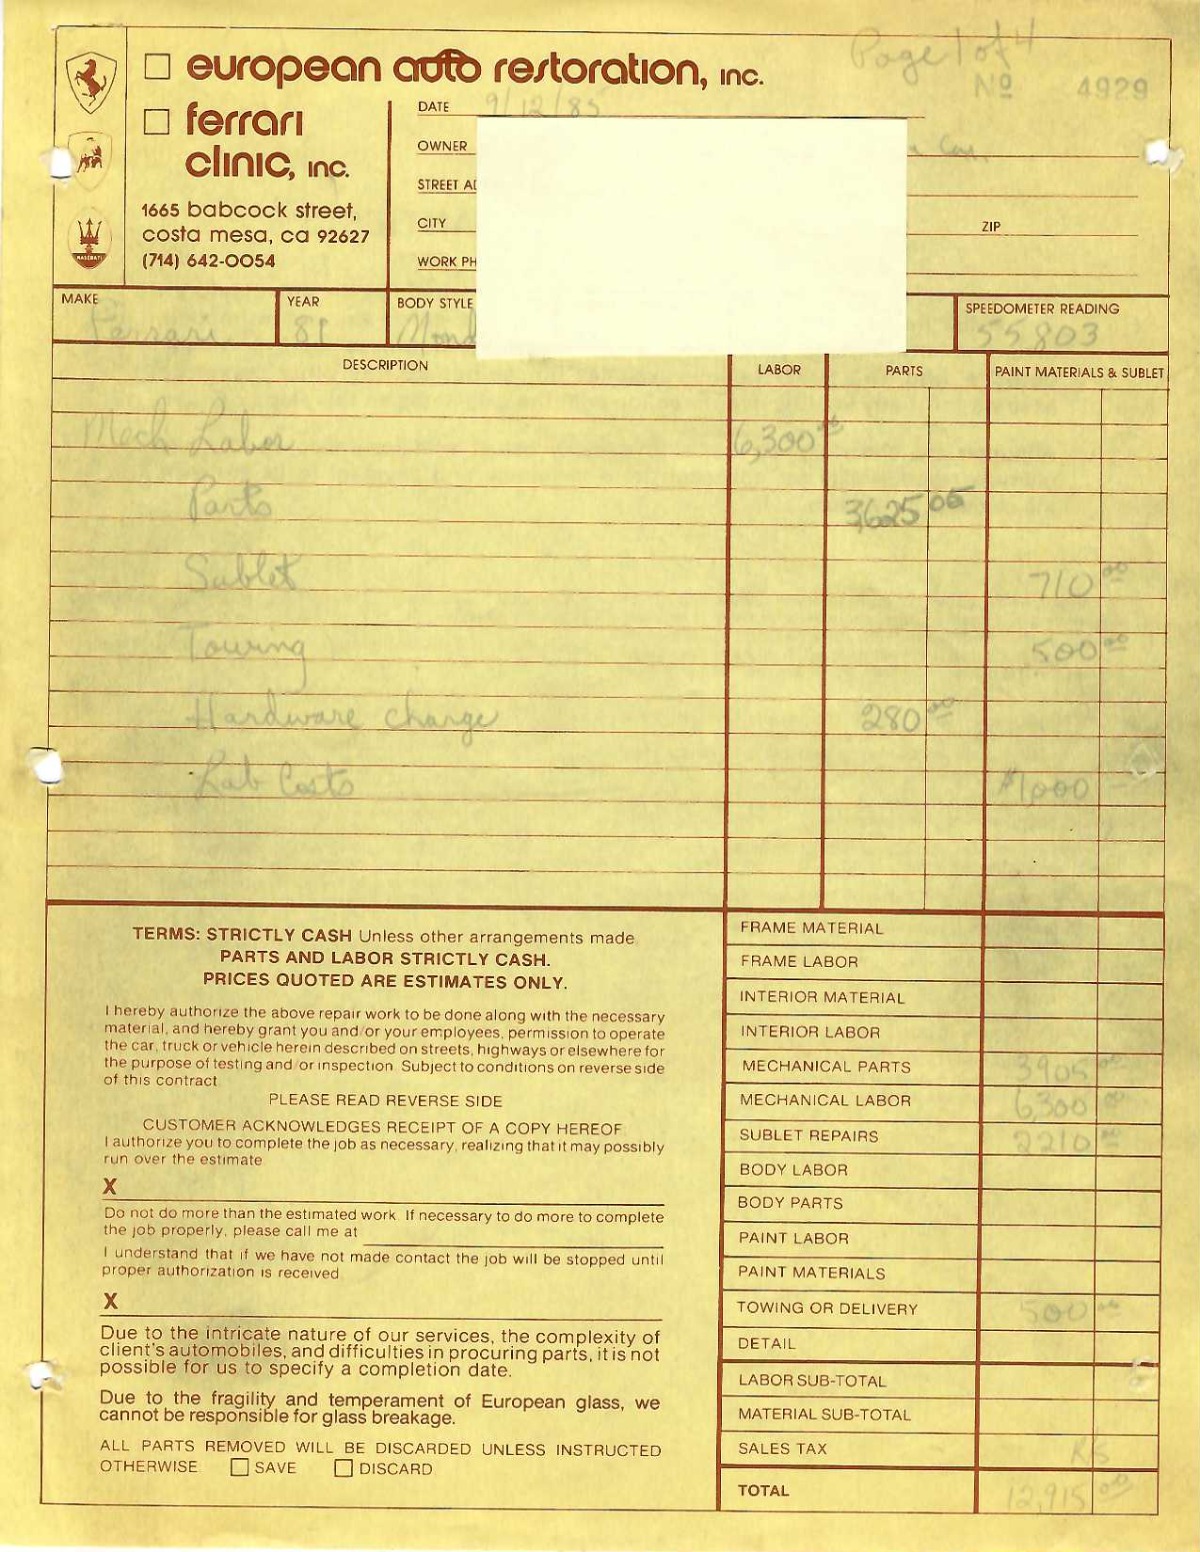 Page 1 of 4
european auto restoration, inc.
Nº 4929
ferrari
clinic, inc.
1665 babcock street,
costa mesa, ca 92627
(714) 642-0054
DATE 9/12/85
OWNER
STREET AD
CITY
ZIP
WORK PH
MAKE YEAR BODY STYLE SPEEDOMETER READING
Ferrari 81 Mond 55803
DESCRIPTION LABOR PARTS PAINT MATERIALS & SUBLET
Mech Labor 6,300 00
Parts 3625 05
Sublet 710 00
Towing 500 00
Hardware charge 280 00
Lab Costs $1,000
TERMS: STRICTLY CASH Unless other arrangements made
PARTS AND LABOR STRICTLY CASH.
PRICES QUOTED ARE ESTIMATES ONLY.
I hereby authorize the above repair work to be done along with the necessary
material, and hereby grant you and/or your employees, permission to operate
the car, truck or vehicle herein described on streets, highways or elsewhere for
the purpose of testing and/or inspection. Subject to conditions on reverse side
of this contract.
PLEASE READ REVERSE SIDE
CUSTOMER ACKNOWLEDGES RECEIPT OF A COPY HEREOF
I authorize you to complete the job as necessary, realizing that it may possibly
run over the estimate
X
Do not do more than the estimated work. If necessary to do more to complete
the job properly, please call me at
I understand that if we have not made contact the job will be stopped until
proper authorization is received
X
Due to the intricate nature of our services, the complexity of
client's automobiles, and difficulties in procuring parts, it is not
possible for us to specify a completion date.
Due to the fragility and temperament of European glass, we
cannot be responsible for glass breakage.
ALL PARTS REMOVED WILL BE DISCARDED UNLESS INSTRUCTED
OTHERWISE SAVE DISCARD
FRAME MATERIAL
FRAME LABOR
INTERIOR MATERIAL
INTERIOR LABOR
MECHANICAL PARTS 3905 00
MECHANICAL LABOR 6,300 00
SUBLET REPAIRS 2210 00
BODY LABOR
BODY PARTS
PAINT LABOR
PAINT MATERIALS
TOWING OR DELIVERY 500 00
DETAIL
LABOR SUB-TOTAL
MATERIAL SUB-TOTAL
SALES TAX RS
TOTAL 12,915 00